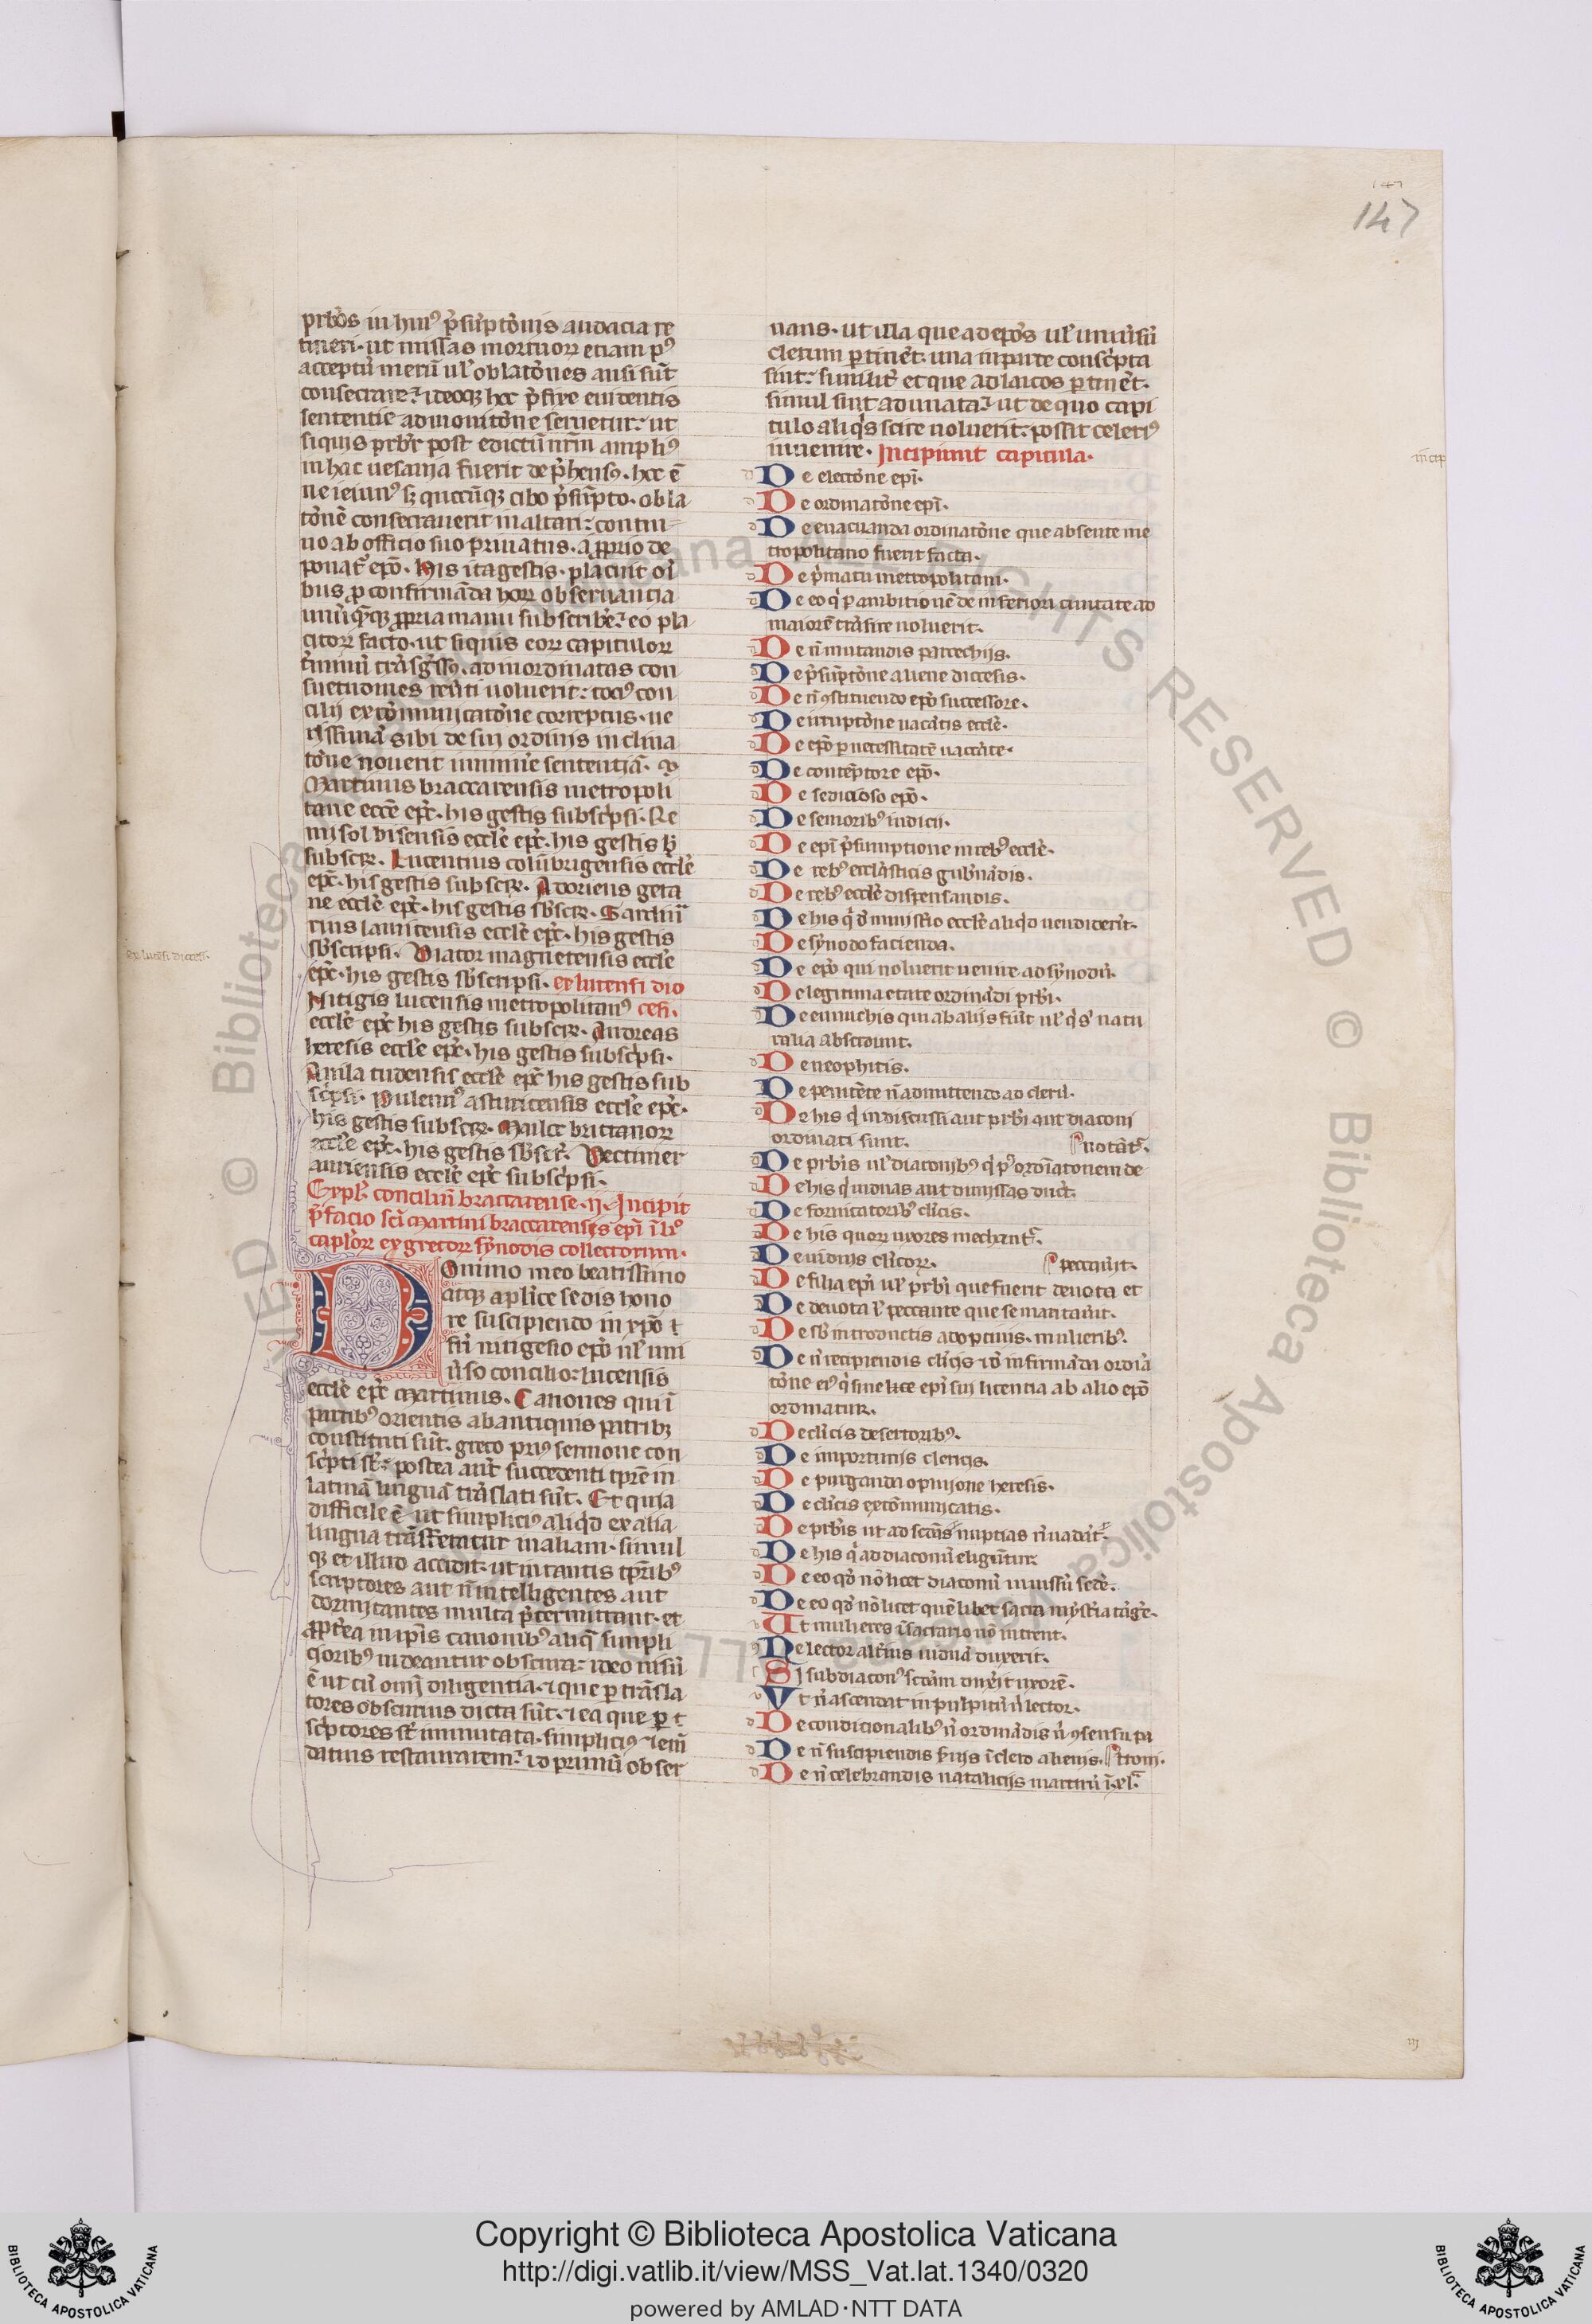 147
147
prb̄os in hui9 p̄sūptōnis audacia re
tineri· ut missas mortuorꝝ etiam p9
acceptū merū ul' oblatōnes ausi sūt
consecrare· ideoqꝫ hoc p̄fixe euidentis
sententie admonitōne seruetur· ut
siquis prb̄r post edictū nr̄m ampli9
in hac uesania fuerit dep̄hensꝰ· hoc ē
ne ieiunꝰ sꝫ quocūqꝫ cibo p̄sūpto· obla
tōnē consecrauerit in altari· contin
uo ab officio suo priuatus· a ꝓprio de
ponat' ep̄o· His ita gestis· placuit oī
bus ꝓ confirmāda horꝝ obseruantia
unūqꝫqꝫ ꝓpria manu subscribē· eo pla
citorꝝ facto· ut siquis eorꝝ capitulorꝝ
t'minū trāsgr̄ssꝰ· ad inordinatas con
suetudines reūti uoluerit· tociꝰ con
cilij excōmunicatōne correptus· ue
rissimā sibi de sui ordinis inclina
tōne nouerit imminē sententiā·
Martinus braccarensis metropoli
tane eccē ep̄c· his gestis subsc'psi· Re
misol bisensis eccl'e ep̄c· his gestis
subscr̄· Lucentius colūbrigensis eccl'e
ep̄c· his gestis subscr̄· Adoriens geta
ne eccl'e ep̄c· his gestis sb̄scr̄· Sardini
rius lamitensis eccl'e ep̄c· his gestis
sb̄scripsi· Viator magnetensis eccl'e
ep̄c· his gestis sb̄scripsi· ex lucensi dio
Nitigis lucensis metropolitanꝰ cesi·
eccl'e ep̄c his gestis subscr̄· Andreas
heresis eccl'e ep̄c· his gestis subsc'psi·
Anila tudensis eccl'e ep̄c his gestis sub
sc'psi· Pulemiꝰ asturicensis eccl'e ep̄c·
his gestis subscr̄· Mailoc brittanorꝝ
eccl'e ep̄c· his gestis sb̄scr̄· Vectimer
auriensis eccl'e ep̄c subsc'psi·
Expl' conciliū braccarense·ij· Incipit
p̄facio sc̄i martini braccarensis ep̄i ī lib°
capl'orꝝ ex grecorꝝ synodis collectorum·
Domino meo beatissimo
atqꝫ aplice sedis hono
re suscipiendo in xp̄o
fr̄i nitigesio ep̄o ul' uni
u'so concilio lucensis
eccl'e ep̄c martinus· Canones qui ī
partibꝰ orientis ab antiquis patribꝫ
constituti sūt· greco priꝰ sermone con
sc'pti sūt· postea aūt succedenti tp̄re in
latinā linguā trāslati sūt· Et quia
difficile ē ut simpliciꝰ aliq'd ex alia
lingua trāsferatur in aliam· simul
qꝫ et illud accidit· ut in tantis tp̄ribꝰ
scriptores aut n̄ intelligentes aut
dormitantes multa p̄termittant· et
ꝓpt'ea in ip̄is canonibꝰ aliq' simpli
cioribꝰ uideantur obscura· ideo uisū
ē ut cū omī diligentia· et que p trāsla
tores obscurius dicta sūt· et ea que p
sc'ptores sūt immutata· simpliciꝰ et em̄
datius restaurarem· id primū obser
uans· ut illa que ad ep̄os ul' uniu'sū
clerum p tinēt· una in parte consc'pta
sint· similit' et que ad laicos p tinēt·
simul sint adunata· ut de quo capi
tulo aliq's scire uoluerit· possit celeriꝰ
inuenire· Incipiunt capitula·
De electōne ep̄i·
De ordinatōne ep̄i·
De euacuanda ordinatōne que absente me
tropolitano fuerit facta·
De p'matu metropolitani·
De eo q' p ambitionē de inferiori ciuitate ad
maiorē trāsire uoluerit·
De n̄ mutandis parrochijs·
De p̄sūptōne aliene diocesis·
De n̄ 9stituendo ep̄o successore·
De irruptōne uacātis eccl'e·
De ep̄o p necessitatē uacāte·
De contēptore ep̄o·
De sedicioso ep̄o·
De senioribꝰ iudicij·
De ep̄i p̄sumptione in rebꝰ eccl'e·
De rebꝰ eccl'asticis gub'nādis·
De rebꝰ eccl'e dispensandis·
De his q' d' ministio eccl'e aliq'd uendider̄t·
De synodo facienda·
De ep̄o qui noluerit uenire ad synodū·
De legitima etate ordinādi prb̄i·
De eunuchis qui ab alijs sūt ul' q' s' natu
ralia abscidunt·
De neophitis·
De penitēte n̄ admittendo ad clerū·
De his q' indiscussi aut prb̄i aut diaconi
ordinati sunt· notāt'·
De prb̄is ul' diaconibꝰ q' pꝰ ordinatōnem de
De his q' uiduas aut dimissas duc̄t·
De fornicatoribꝰ cl'icis·
De his quorꝝ uxores mechant'·
De uiduis cl'icorꝝ· peccauit·
De filia ep̄i ul' prb̄i que fuerit deuota et
De deuota ul' peccante que se maritauit·
De sb̄introductis adoptiuis mulieribꝰ·
De n̄ recipiendis cl'icis et d' infirmāda ordinā
tōne eiꝰ q' sine ep̄i sui licentia ab alio ep̄o
ordinatur·
De cl'icis desertoribꝰ·
De importunis clericis·
De purganda opinione heresis·
De cl'icis excōmunicatis·
De prb̄is ut ad sc̄dās nuptias n̄ uadāt·
De his q' ad diaconū eligūtur
De eo qd' nō licet diaconū in missū sedē·
De eo qd' nō licet quēlibet sacra myst'ia tāgē·
Ut mulieres ī sacrario nō intrent·
Ne lector alt'ius uiduā duxerit·
Si subdiaconꝰ sc̄dam duxerit uxorē·
Ut n̄ ascendat in pulpitū n̄ lector·
De condicionalibꝰ n̄ ordinādis n̄ 9sensu pa
De n̄ suscipiendis in clero alienis· troni·
De n̄ celebrandis nataliciis martirū ī xl'a
Copyright © Biblioteca Apostolica Vaticana
http://digi.vatlib.it/view/MSS_Vat.lat.1340/0320
powered by AMLAD·NTT DATA
BIBLIOTECA APOSTOLICA VATICANA
BIBLIOTECA APOSTOLICA VATICANA